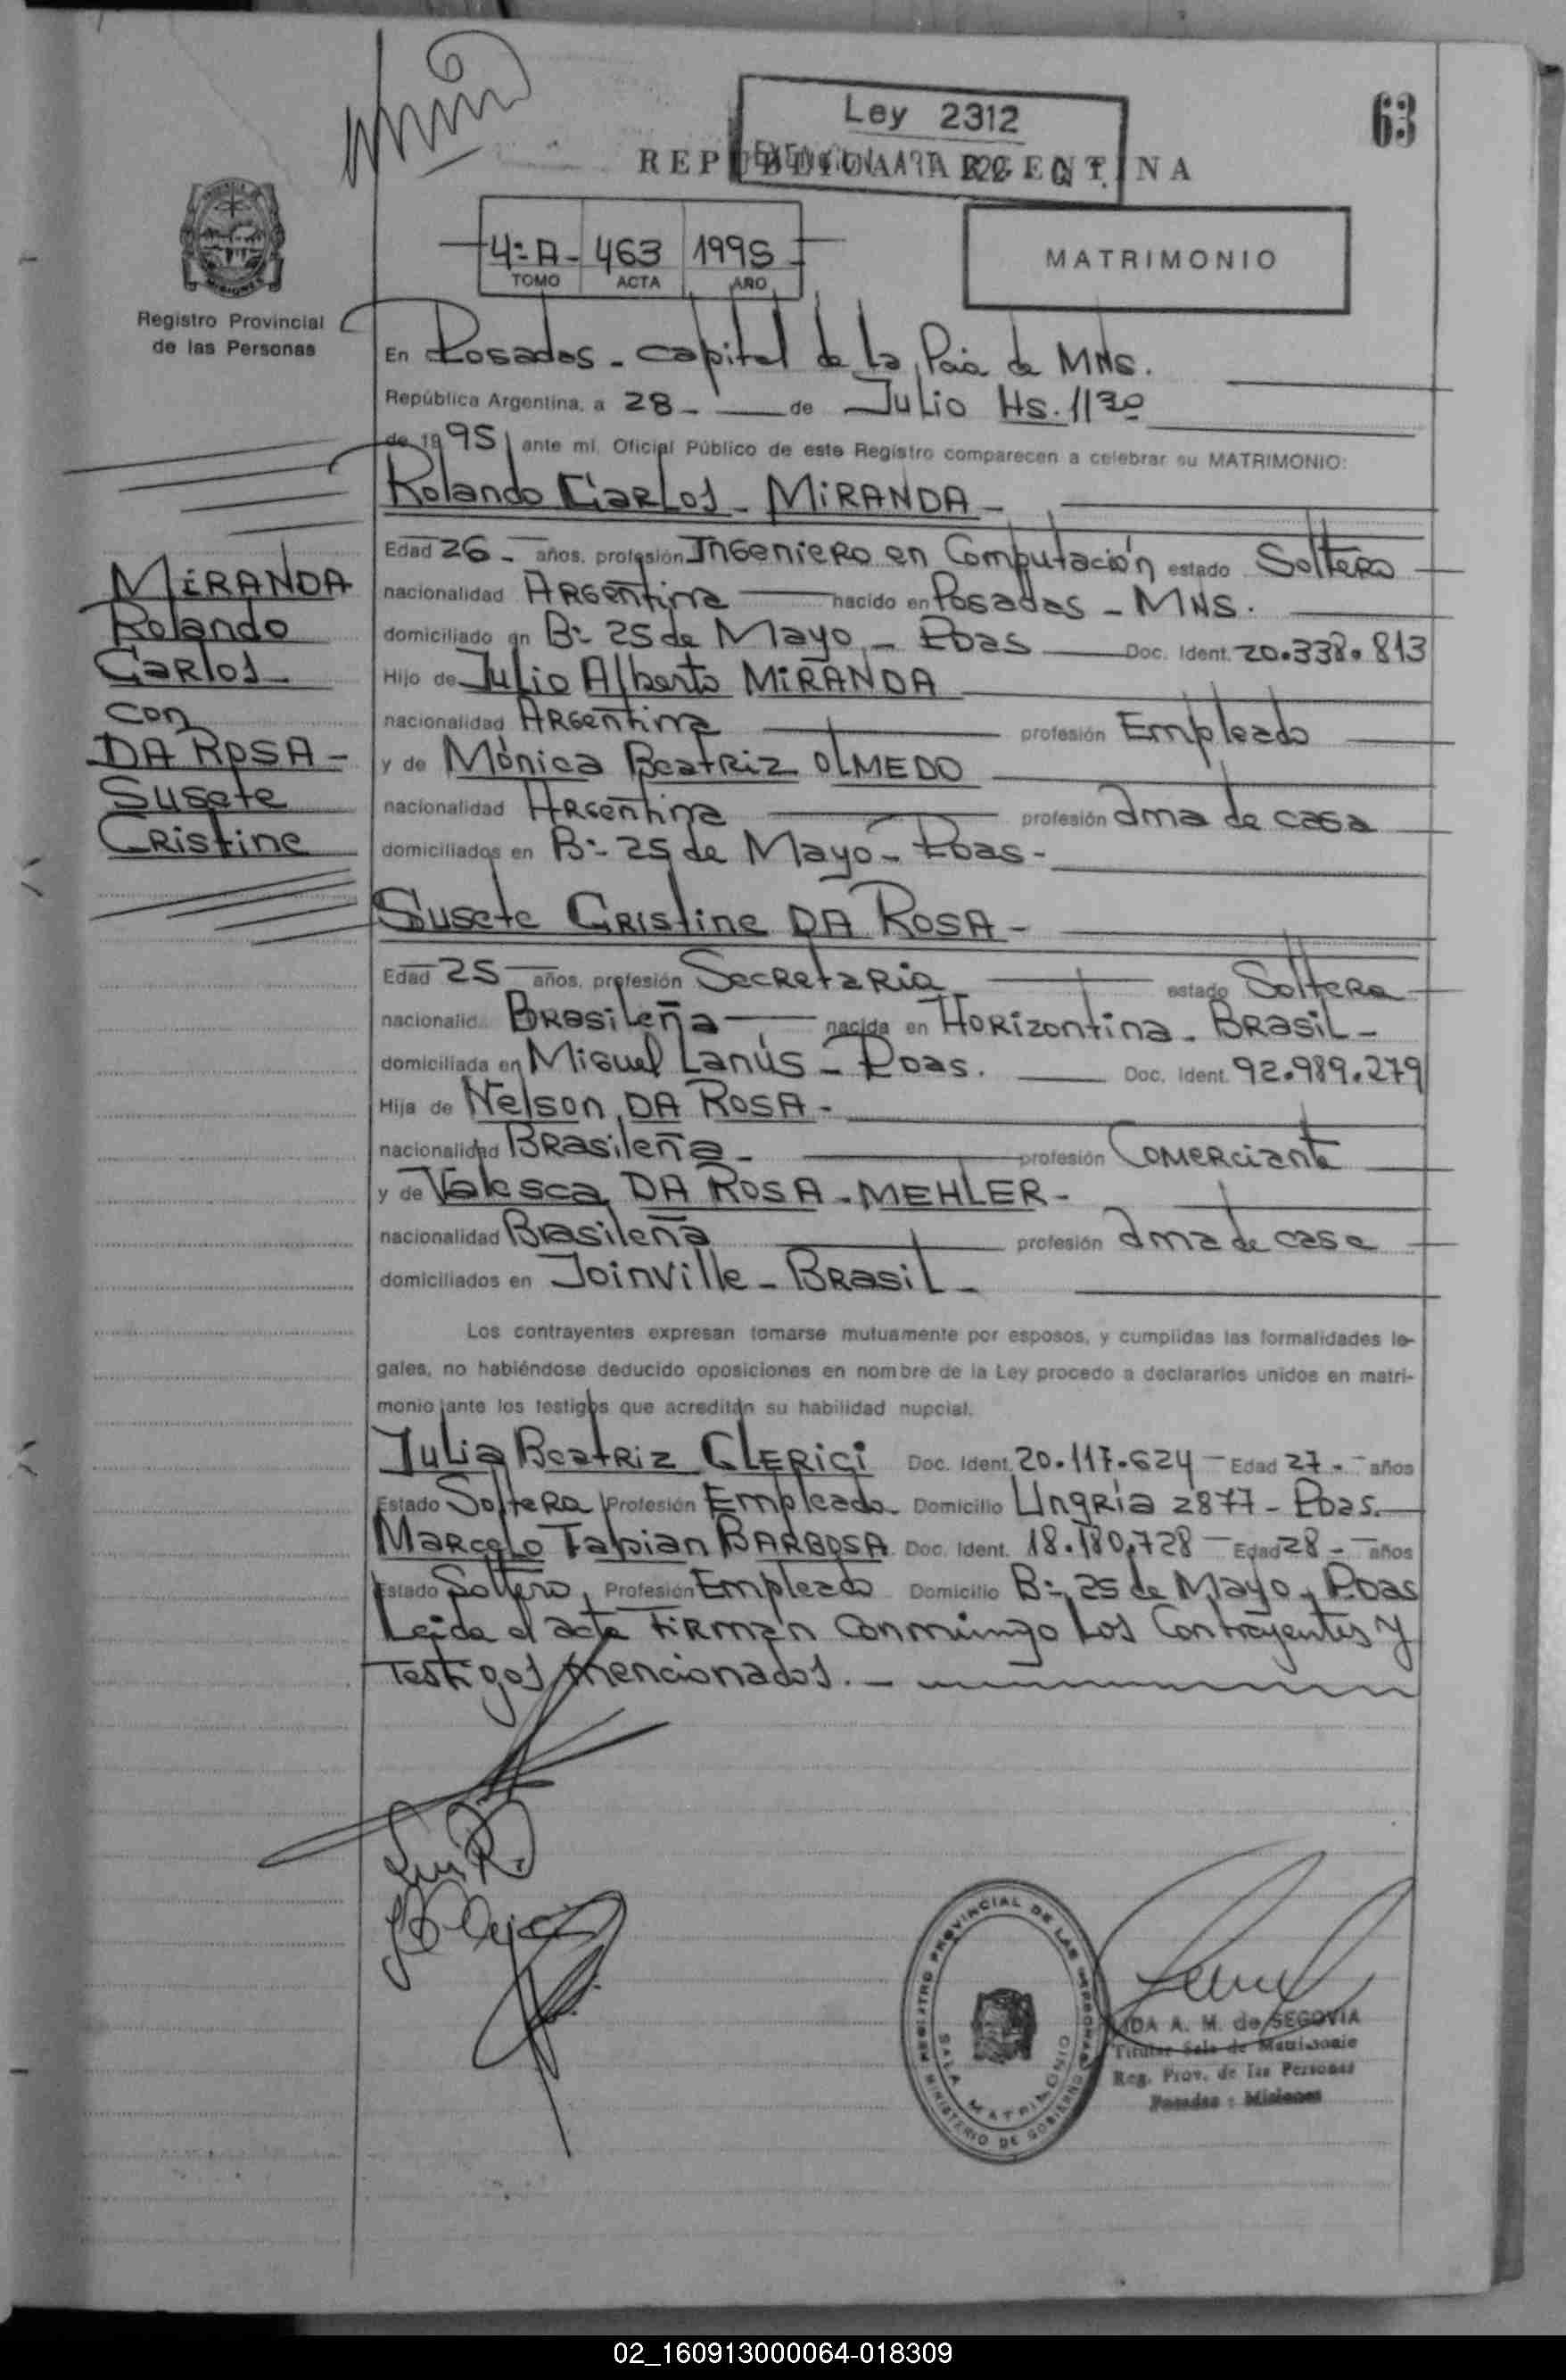 63
Ley 2312
REPUBLICA ARGENTINA
4:-A- 463 1995
TOMO ACTA AÑO
MATRIMONIO
MISIONES
Registro Provincial
de las Personas
En Posadas - capital de la Pcia de MNS.
República Argentina, a 28 - de Julio Hs. 1130
de 1995 ante mí, Oficial Público de este Registro comparecen a celebrar su MATRIMONIO:
Rolando Carlos - MIRANDA -
Edad 26 - años, profesión Ingeniero en Computación estado Soltero
nacionalidad Argentina nacido en Posadas - MNS.
domiciliado en B:- 25 de Mayo - Pdas Doc. Ident. 20.338.813
Hijo de Julio Alberto MIRANDA
nacionalidad Argentina profesión Empleado
y de Mónica Beatriz OLMEDO
nacionalidad Argentina profesión Ama de casa
domiciliados en B:- 25 de Mayo - Pdas -
MIRANDA
Rolando
Carlos
con
DA ROSA -
Susete
Cristine
Susete Cristine DA ROSA -
Edad 25 años, profesión Secretaria estado Soltera
nacionalid. Brasileña nacida en Horizontina - Brasil -
domiciliada en Miguel Lanús - Pdas. Doc. Ident. 92.989.279
Hija de Nelson DA ROSA -
nacionalidad Brasileña - profesión Comerciante
y de Valesca DA ROSA - MEHLER -
nacionalidad Brasileña profesión Ama de casa
domiciliados en Joinville - Brasil -
Los contrayentes expresan tomarse mutuamente por esposos, y cumplidas las formalidades le-
gales, no habiéndose deducido oposiciones en nombre de la Ley procedo a declararlos unidos en matri-
monio ante los testigos que acreditan su habilidad nupcial.
Julia Beatriz CLERICI Doc. Ident. 20.117.624 - Edad 27 - años
Estado Soltera Profesión Empleada Domicilio Ungria 2877 - Pdas.
Marcelo Fabian BARBOSA Doc. Ident. 18.180.728 - Edad 28 - años
Estado Soltero, Profesión Empleado Domicilio B:- 25 de Mayo - Pdas
Leida el acta Firman conmimgo Los Contrayentes y
Testigos mencionados. -
REGISTRO PROVINCIAL DE LAS PERSONAS
SALA MATRIMONIO
MINISTERIO DE GOBIERNO
LIDA A. M. de SEGOVIA
Titular Sala de Matrimonio
Reg. Prov. de las Personas
Posadas - Misiones
02_160913000064-018309